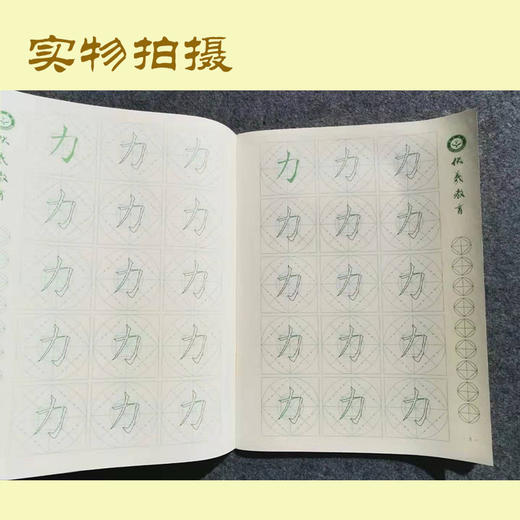 实物拍摄
力 力 力
力 力 力
力 力 力
力 力 力
力 力 力
教育
力 力 力
力 力 力
力 力 力
力 力 力
力 力 力
教育